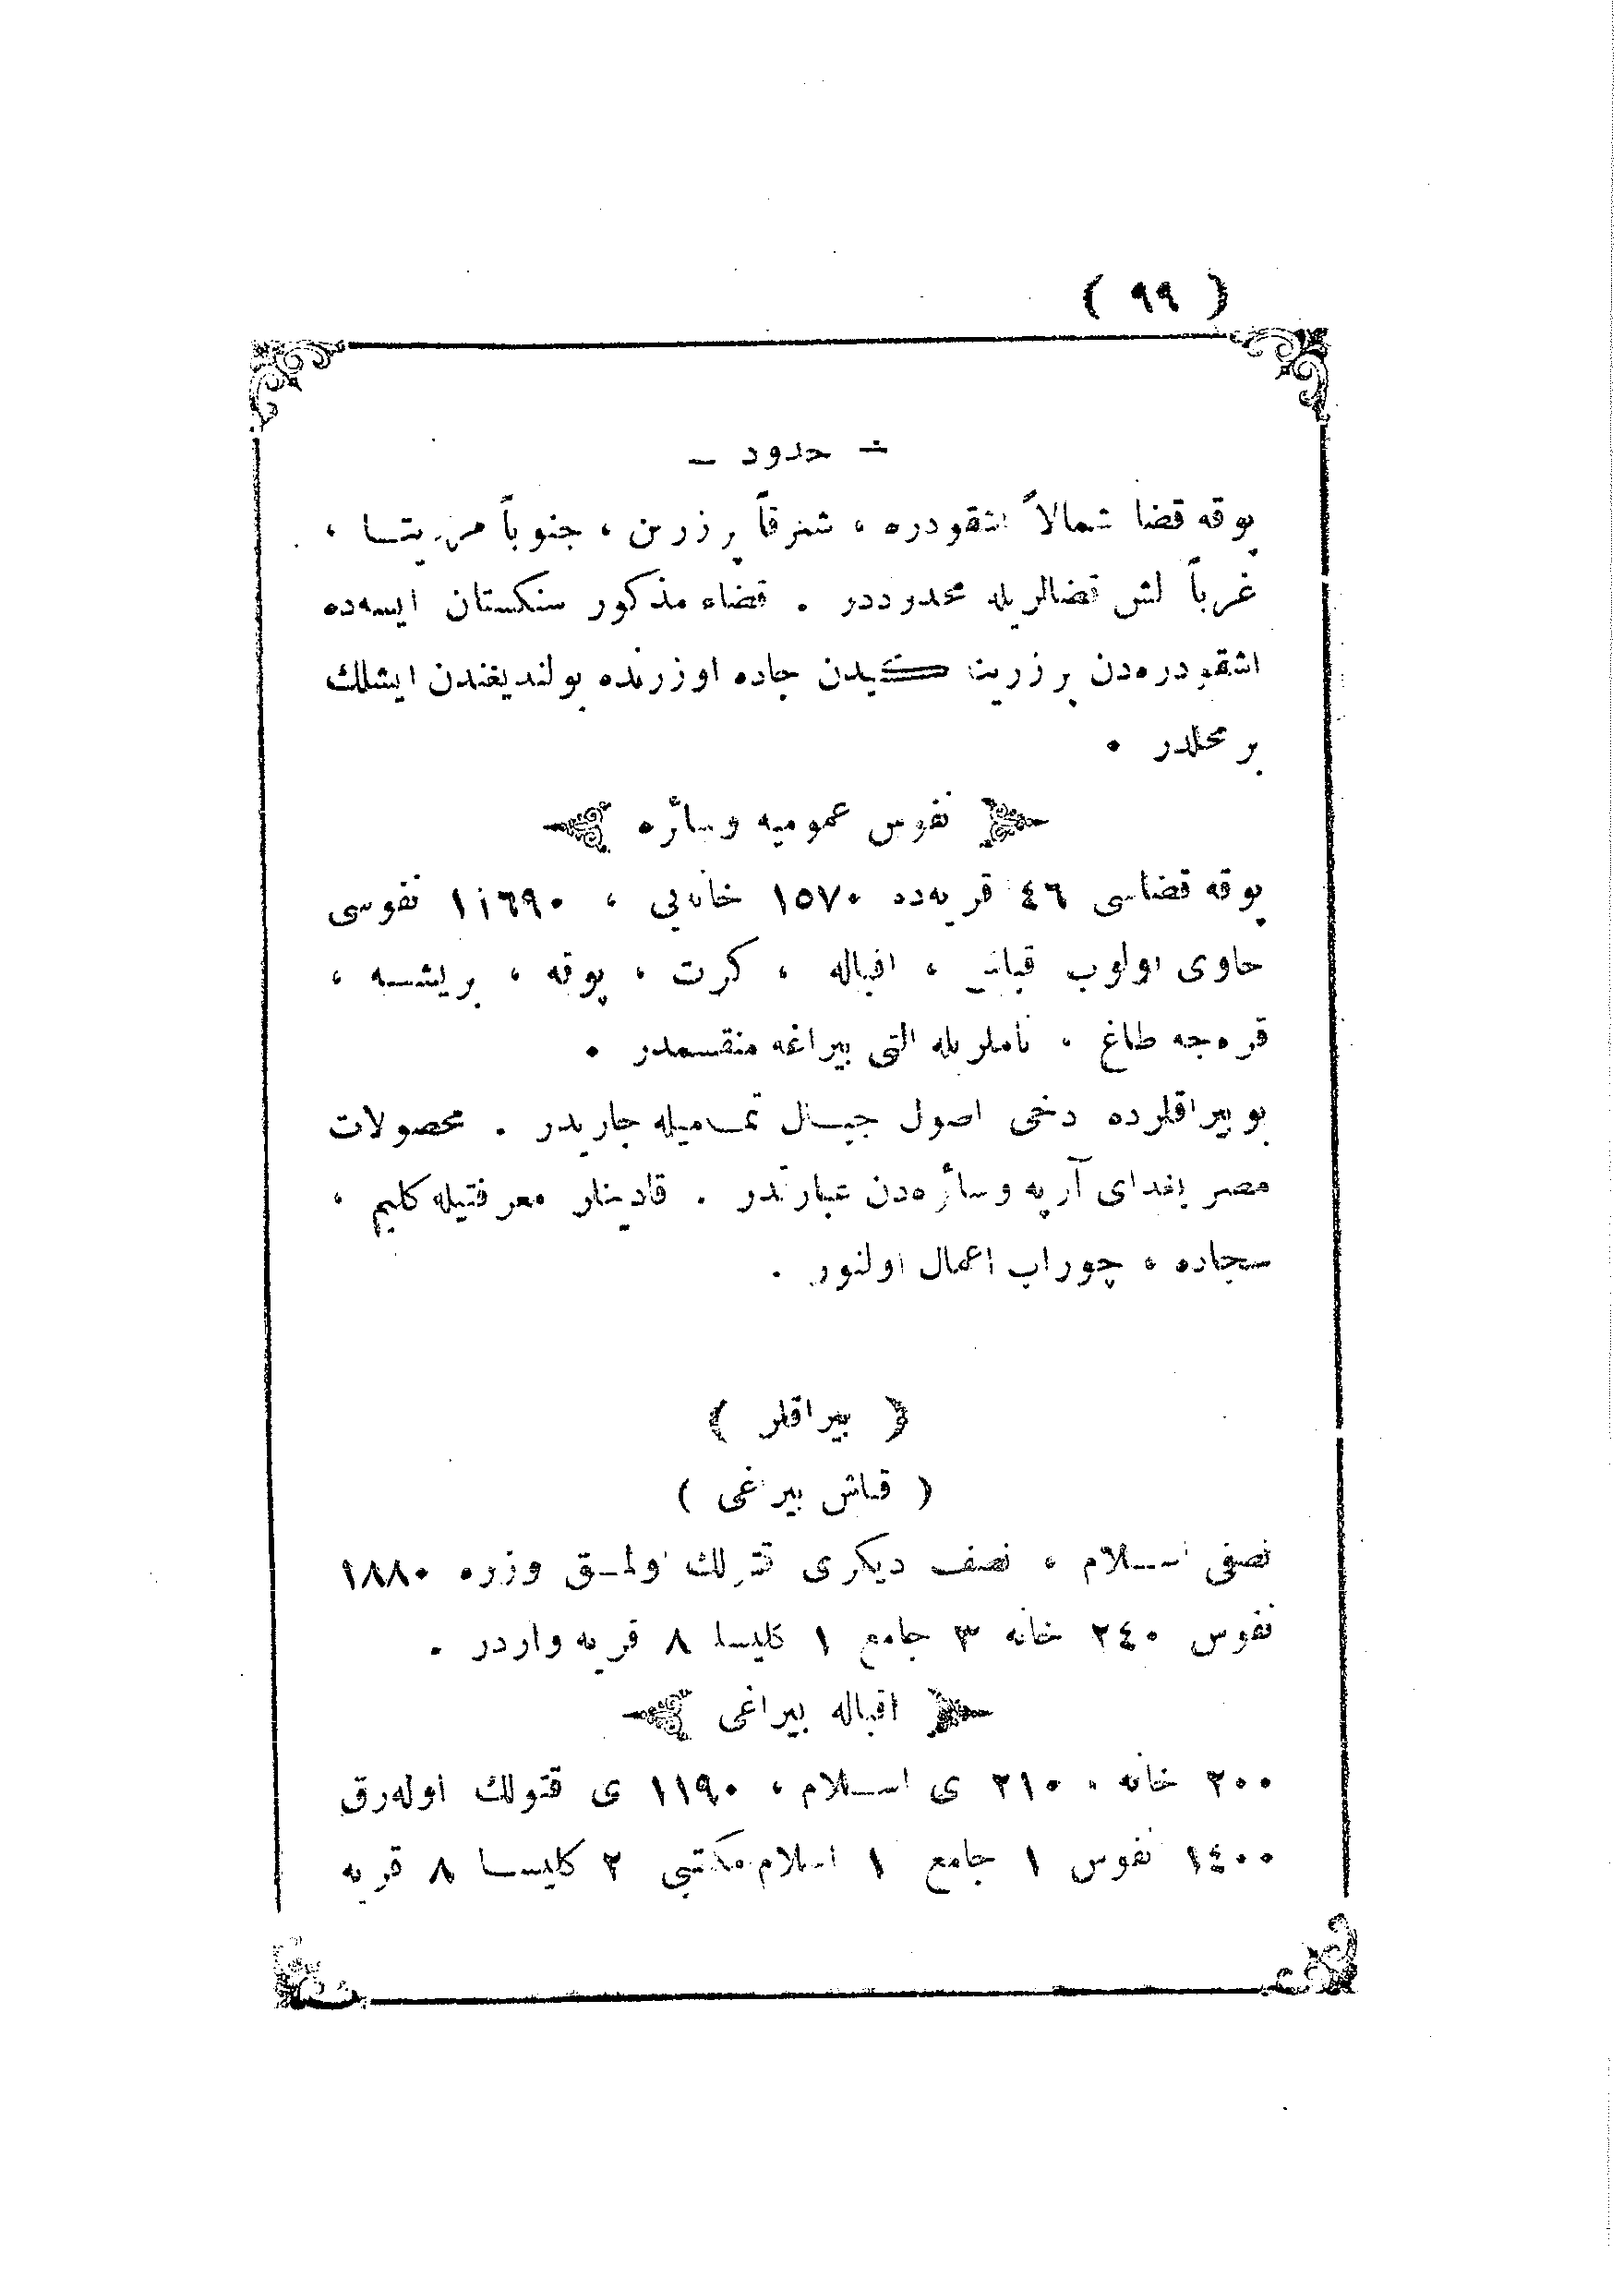 ( ٩٩ )
— حدود —
پوقه قضا شمالاً اشقودره ، شرقاً پرزرين ، جنوباً مرديتا ،
غرباً لش قضالريله محدوددر . قضاء مذكور سنكستان ايسه‌ده
اشقودره‌دن پرزرينه كيدن جاده اوزرنده بولنديغندن ايشلك
بر محلدر .
نفوس عموميه وسائره
پوقه قضاسى ٤٦ قريه‌ده ١٥٧٠ خانه‌يى ، ١١٦٩٠ نفوسى
حاوى اولوب قباش ، اقباله ، كرت ، پوقه ، بريشسه ،
قره‌جه طاغ ، ناملريله التى بيراغه منقسمدر .
بو بيراقلرده دخى اصول جبال تماميله جاريدر . محصولات
مصر بغداى آرپه وسائره‌دن عبارتدر . قادينلر معرفتيله كليم ،
سجاده ، چوراب اعمال اولنور .
( بيراقلر )
( قباش بيراغى )
نصفى اسلام ، نصف ديكرى قتولك اولمق وزره ١٨٨٠
نفوس ٢٤٠ خانه ٣ جامع ١ كليسا ٨ قريه واردر .
اقباله بيراغى
٢٠٠ خانه ، ٢١٠ ى اسلام ، ١١٩٠ ى قتولك اوله‌رق
١٤٠٠ نفوس ١ جامع ١ اسلام مكتبى ٢ كليسا ٨ قريه